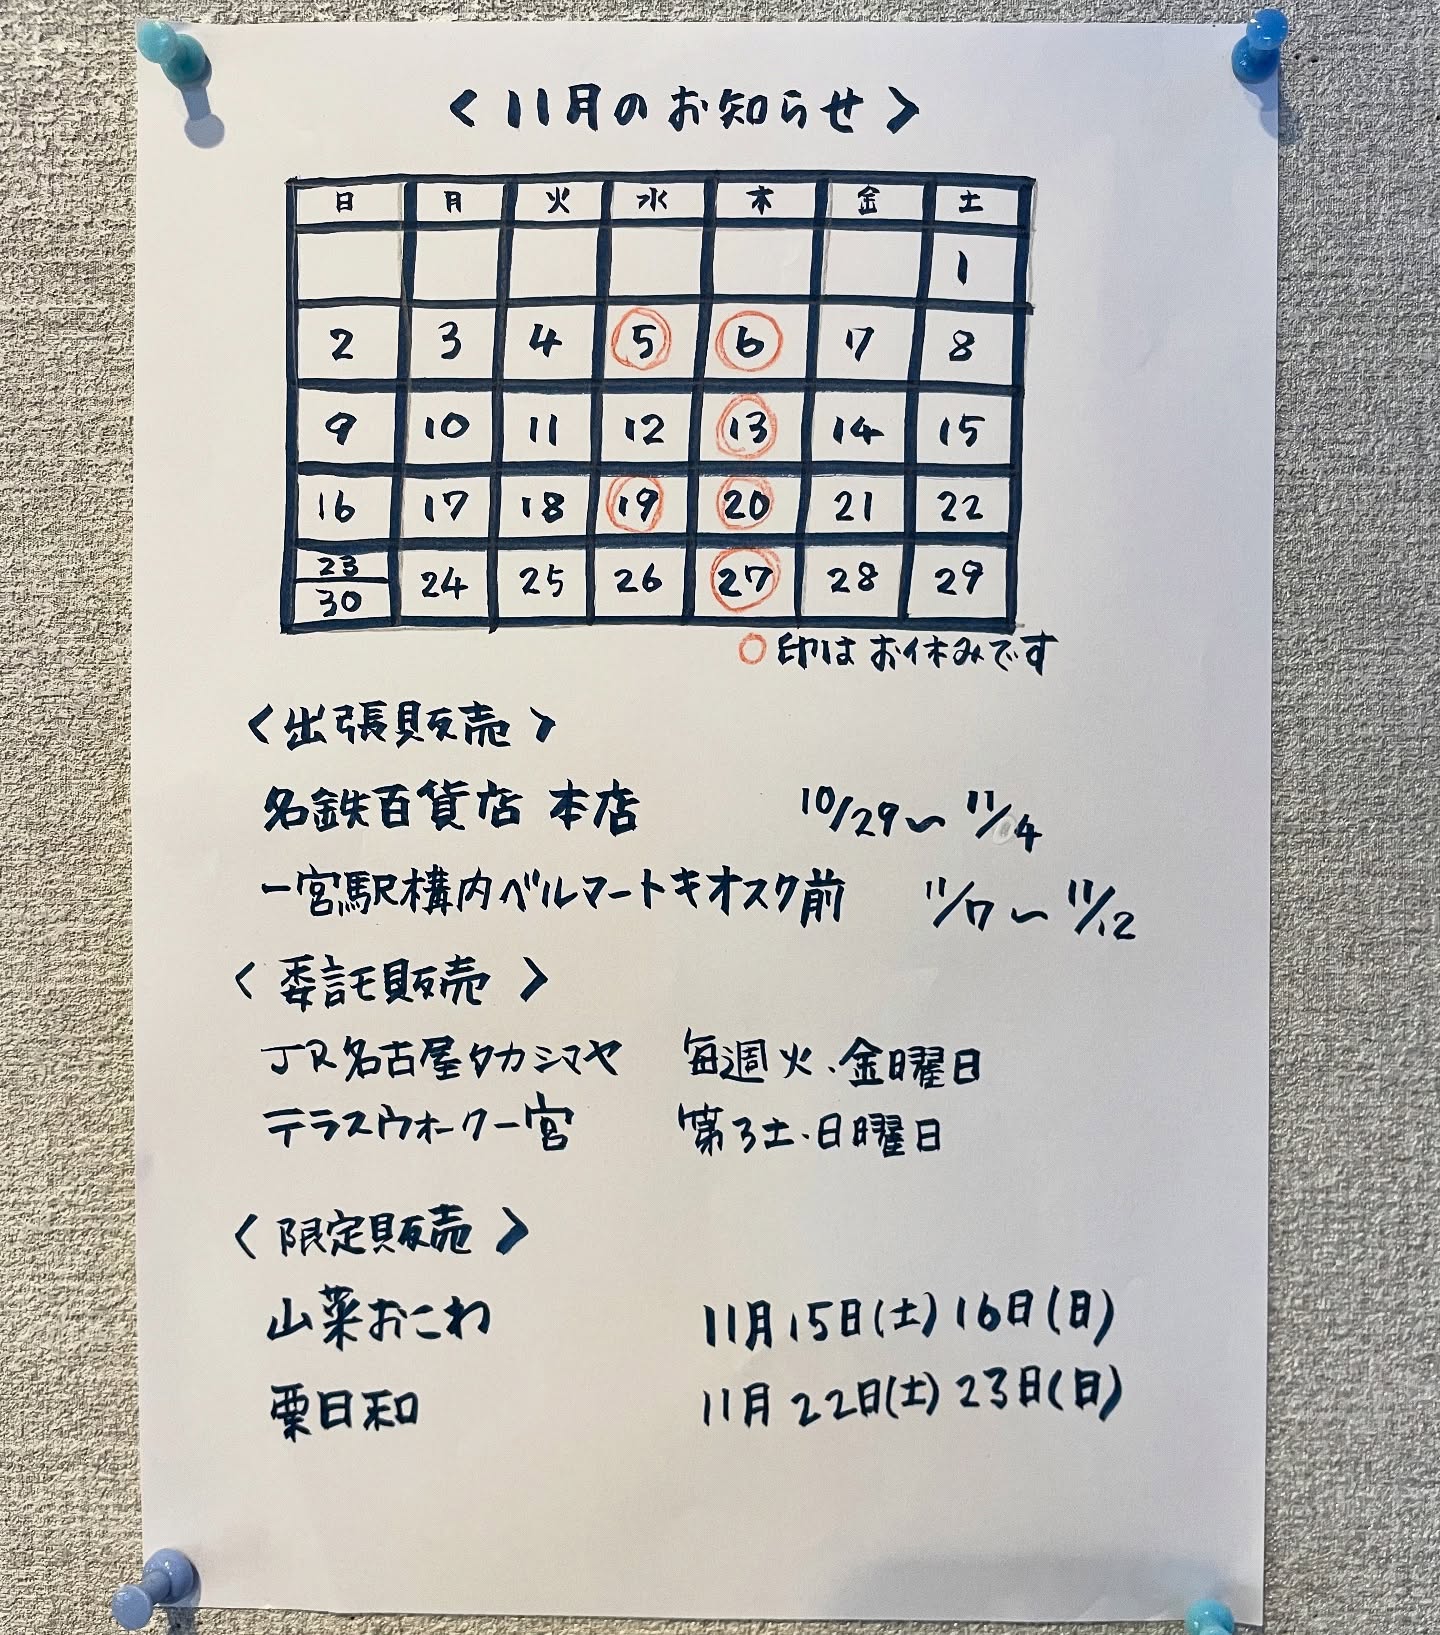 ＜11月のお知らせ＞
日 月 火 水 木 金 土
1
2 3 4 5 6 7 8
9 10 11 12 13 14 15
16 17 18 19 20 21 22
23 24 25 26 27 28 29
30
○印はお休みです
＜出張販売＞
名鉄百貨店 本店 10/29〜11/4
一宮駅構内ベルマートキオスク前 11/7〜11/12
＜委託販売＞
JR名古屋タカシマヤ 毎週火・金曜日
テラスウォーク一宮 第3土・日曜日
＜限定販売＞
山菜おこわ 11月15日(土)16日(日)
栗日和 11月22日(土)23日(日)